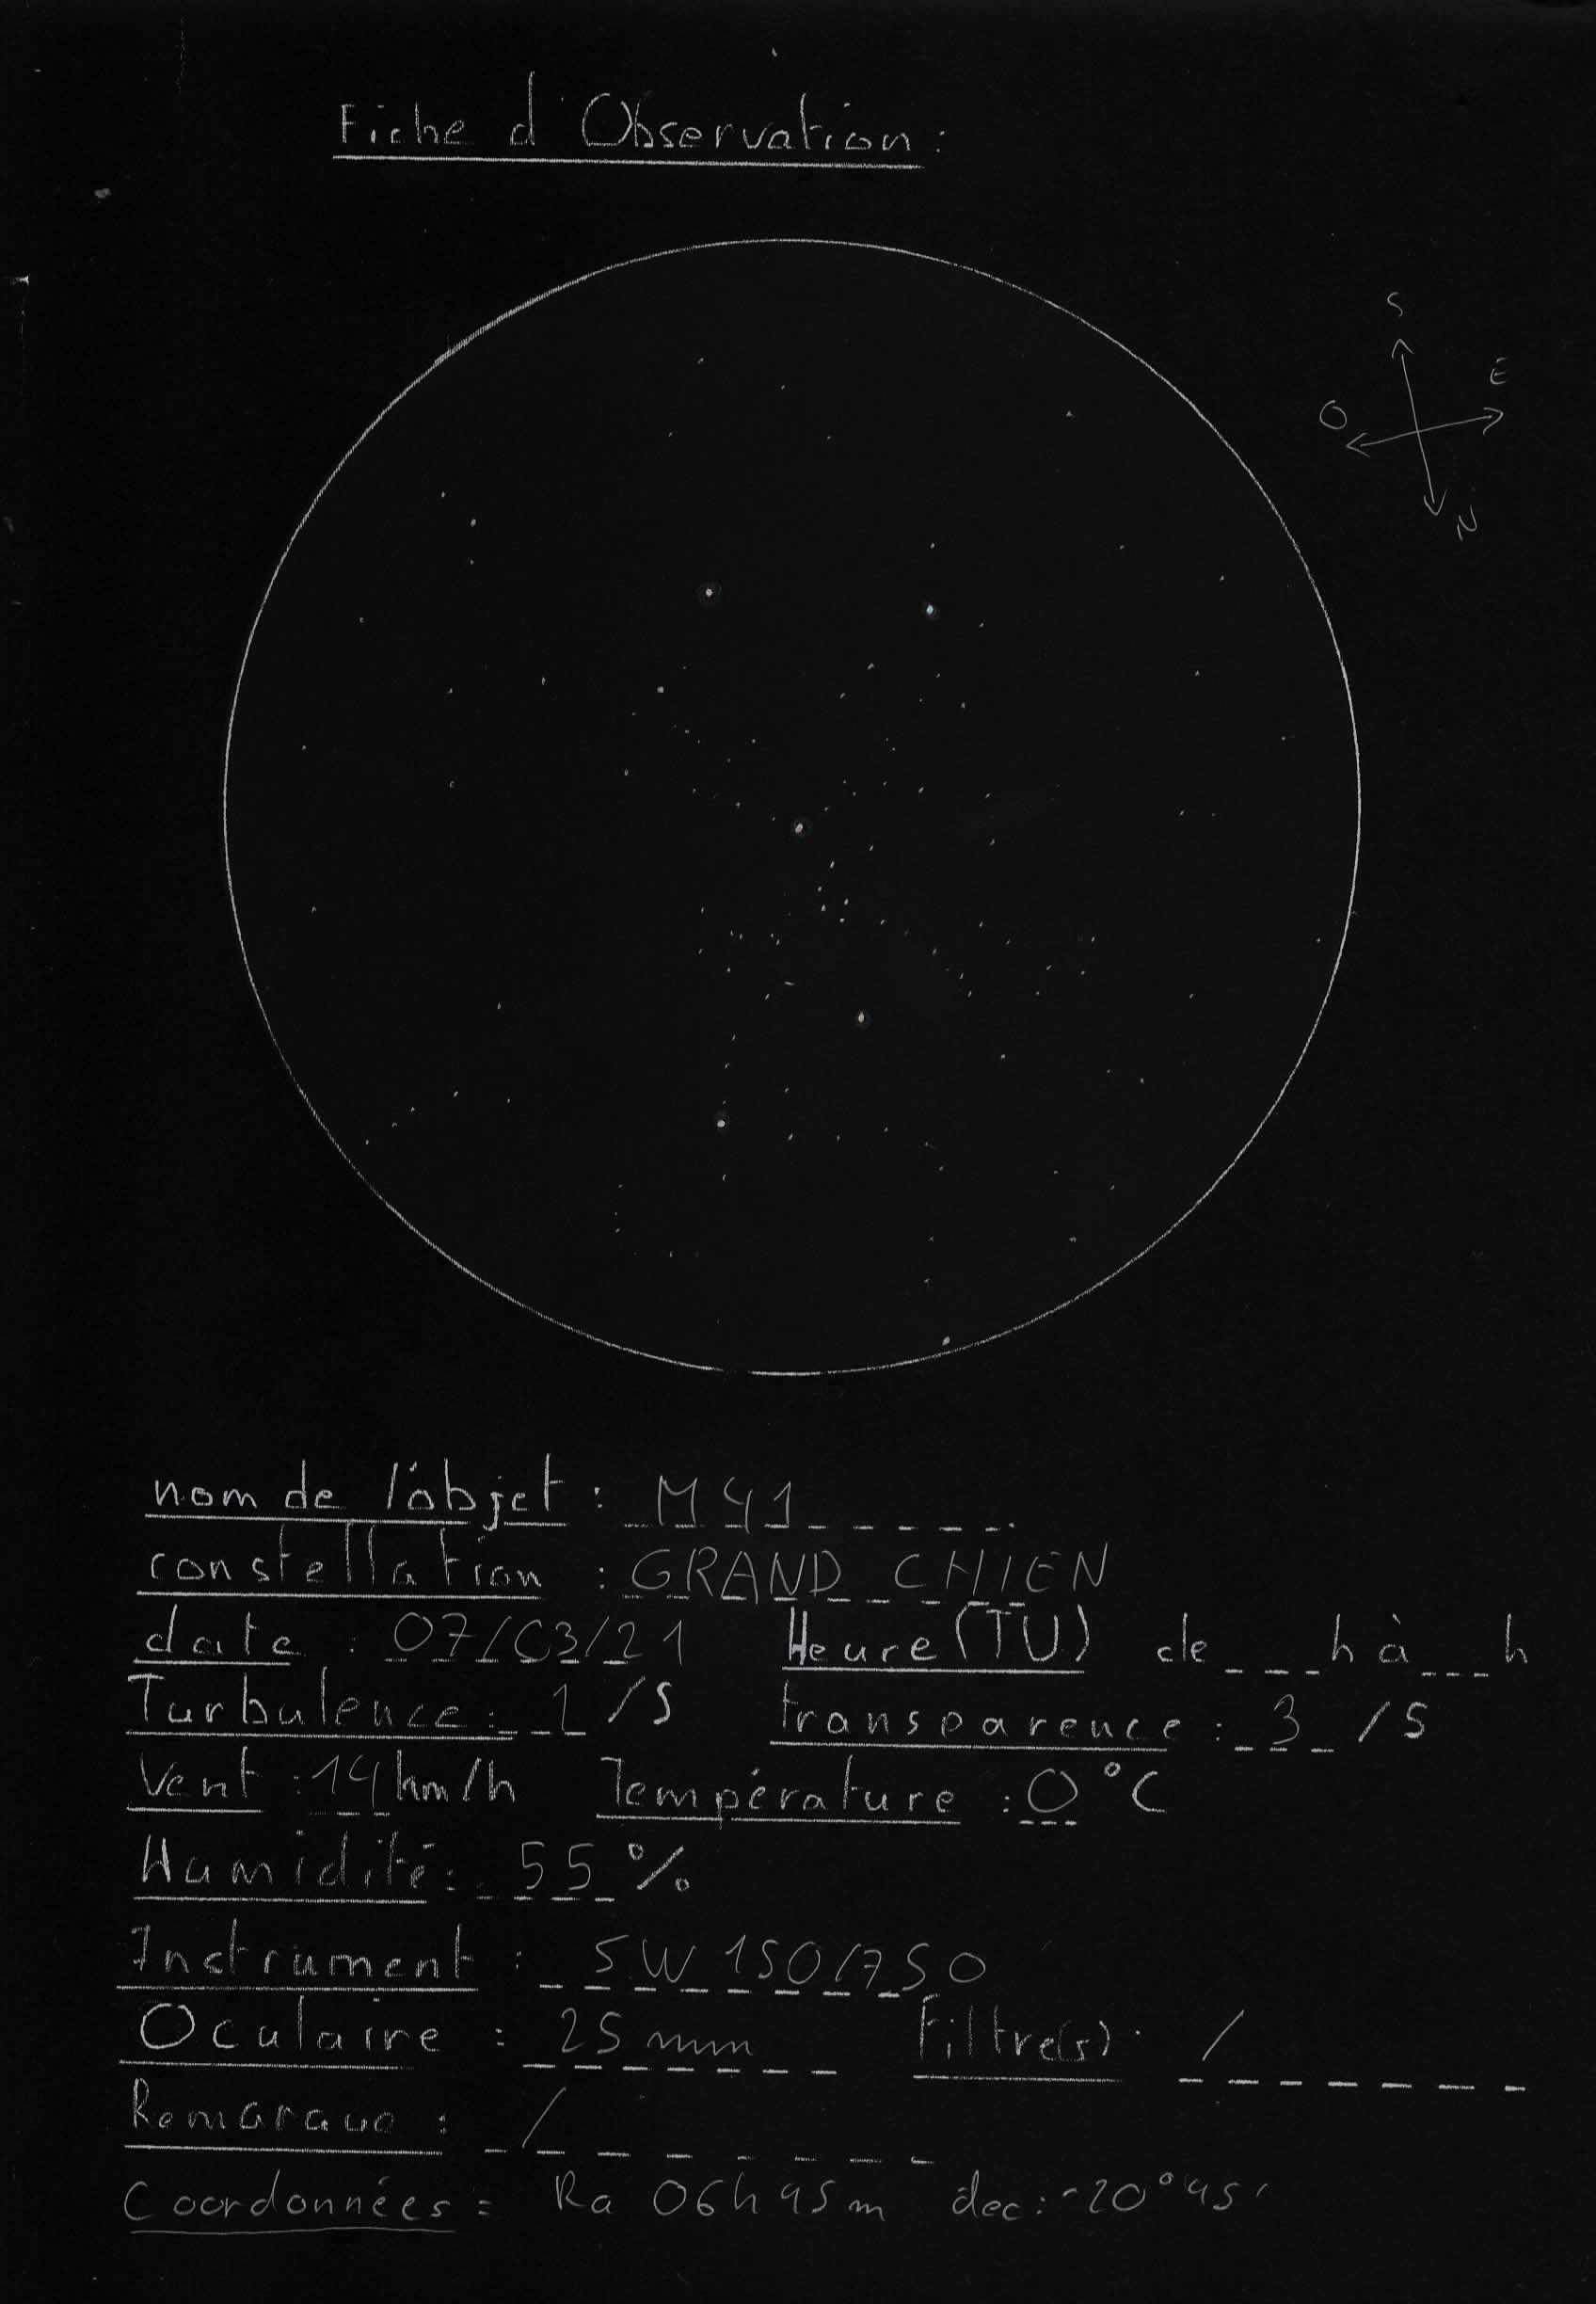 Fiche d'Observation:
S
E
O
N
nom de l'objet : M41
constellation : GRAND CHIEN
date : 07/03/21 Heure (TU) de ___h à ___h
Turbulence: 1 /5 transparence: 3 /5
Vent : 14 km/h Température : 0°C
Humidité: 55 %
Instrument : SW 150/750
Oculaire : 25mm Filtre(s): /
Remarque : /
Coordonnées = Ra 06h45m dec: -20°45'